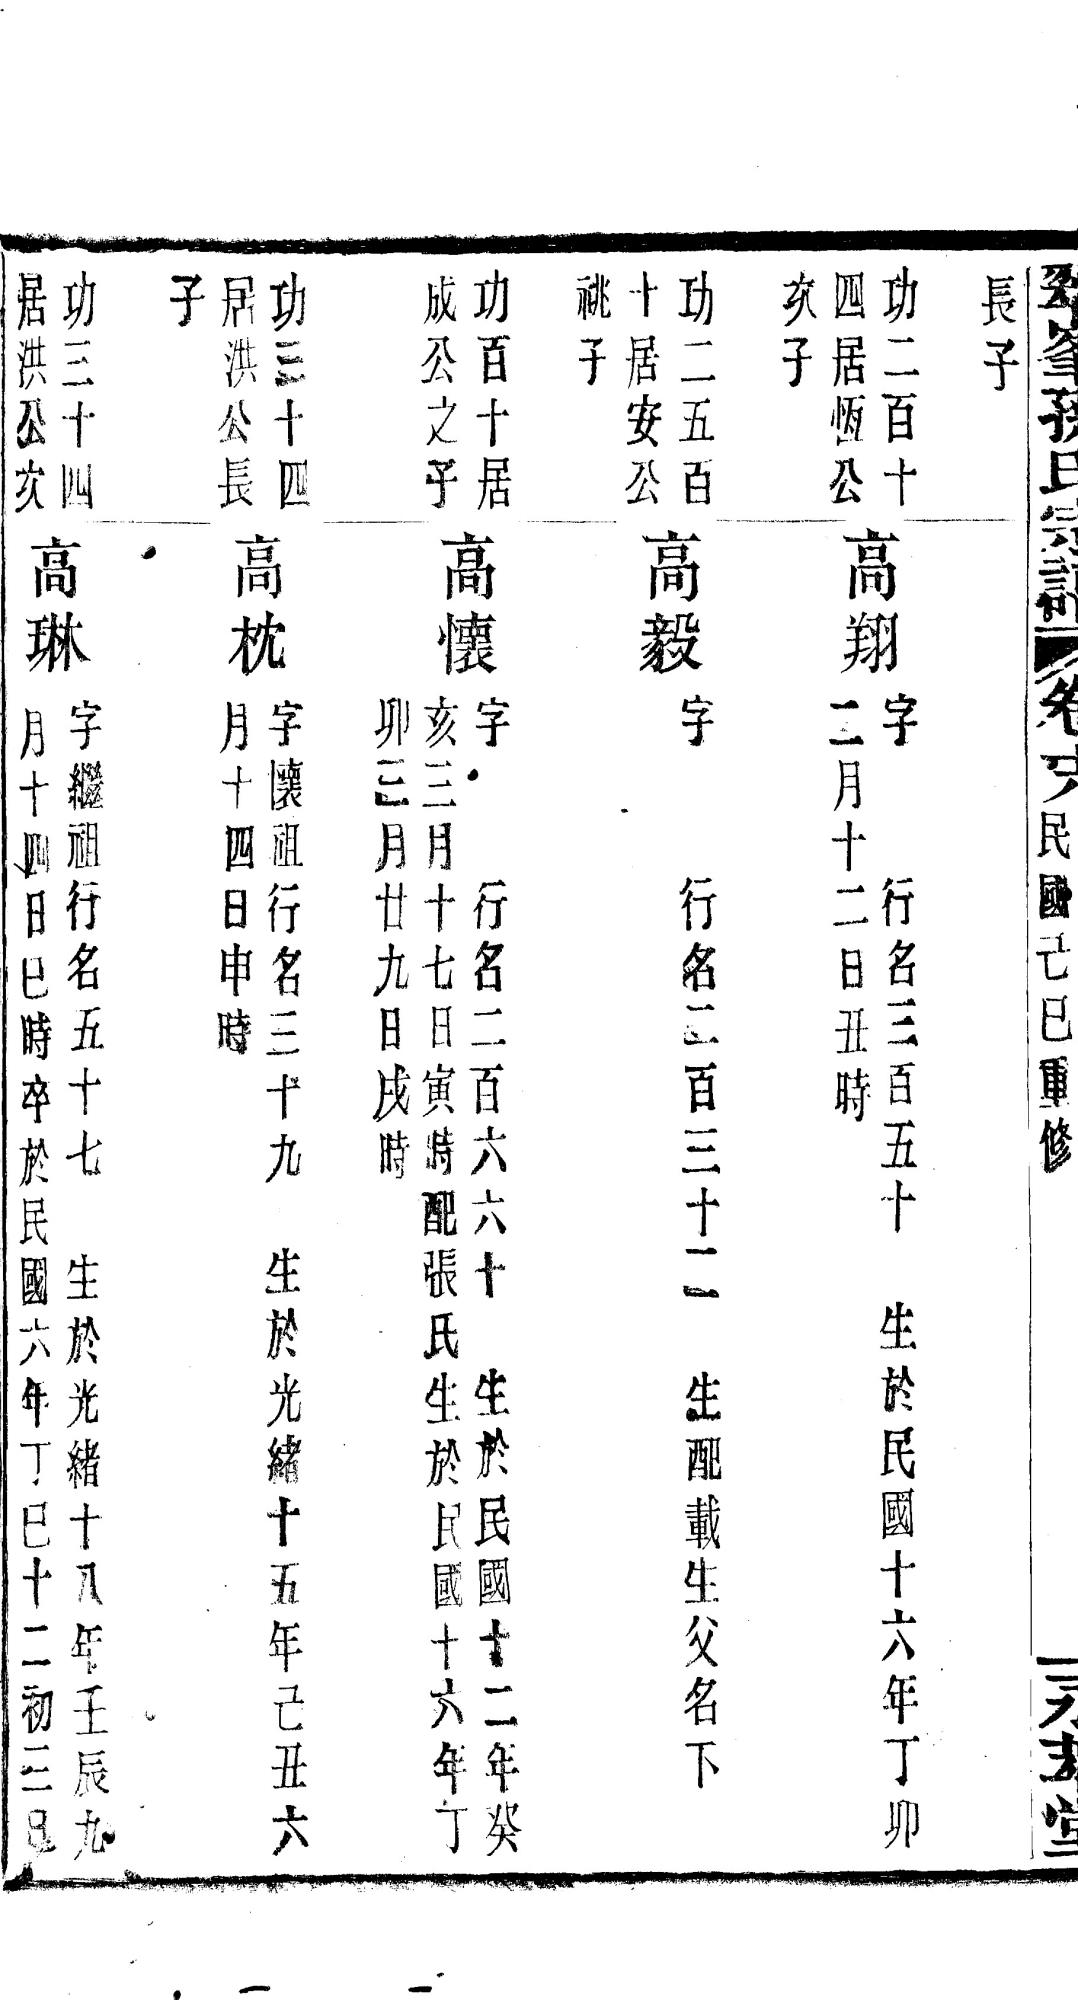 孫氏宗譜 卷 民國己巳重修 堂
長子
功二百十
四居恆公
次子
高翔
字 行名三百五十 生於民國十六年丁卯
二月十二日丑時
功二五百
十居安公
祧子
高毅
字 行名二百三十二 生配載生父名下
功百十居
成公之子
高懷
字 行名二百六六十 生於民國十二年癸
亥三月十七日寅時配張氏生於民國十六年丁
卯三月廿九日戌時
功三十四
居洪公長
子
高枕
字懷祖行名三十九 生於光緒十五年己丑六
月十四日申時
功三十四
居洪公次
高琳
字繼祖行名五十七 生於光緒十八年壬辰九
月十四日巳時卒於民國六年丁巳十二初三日